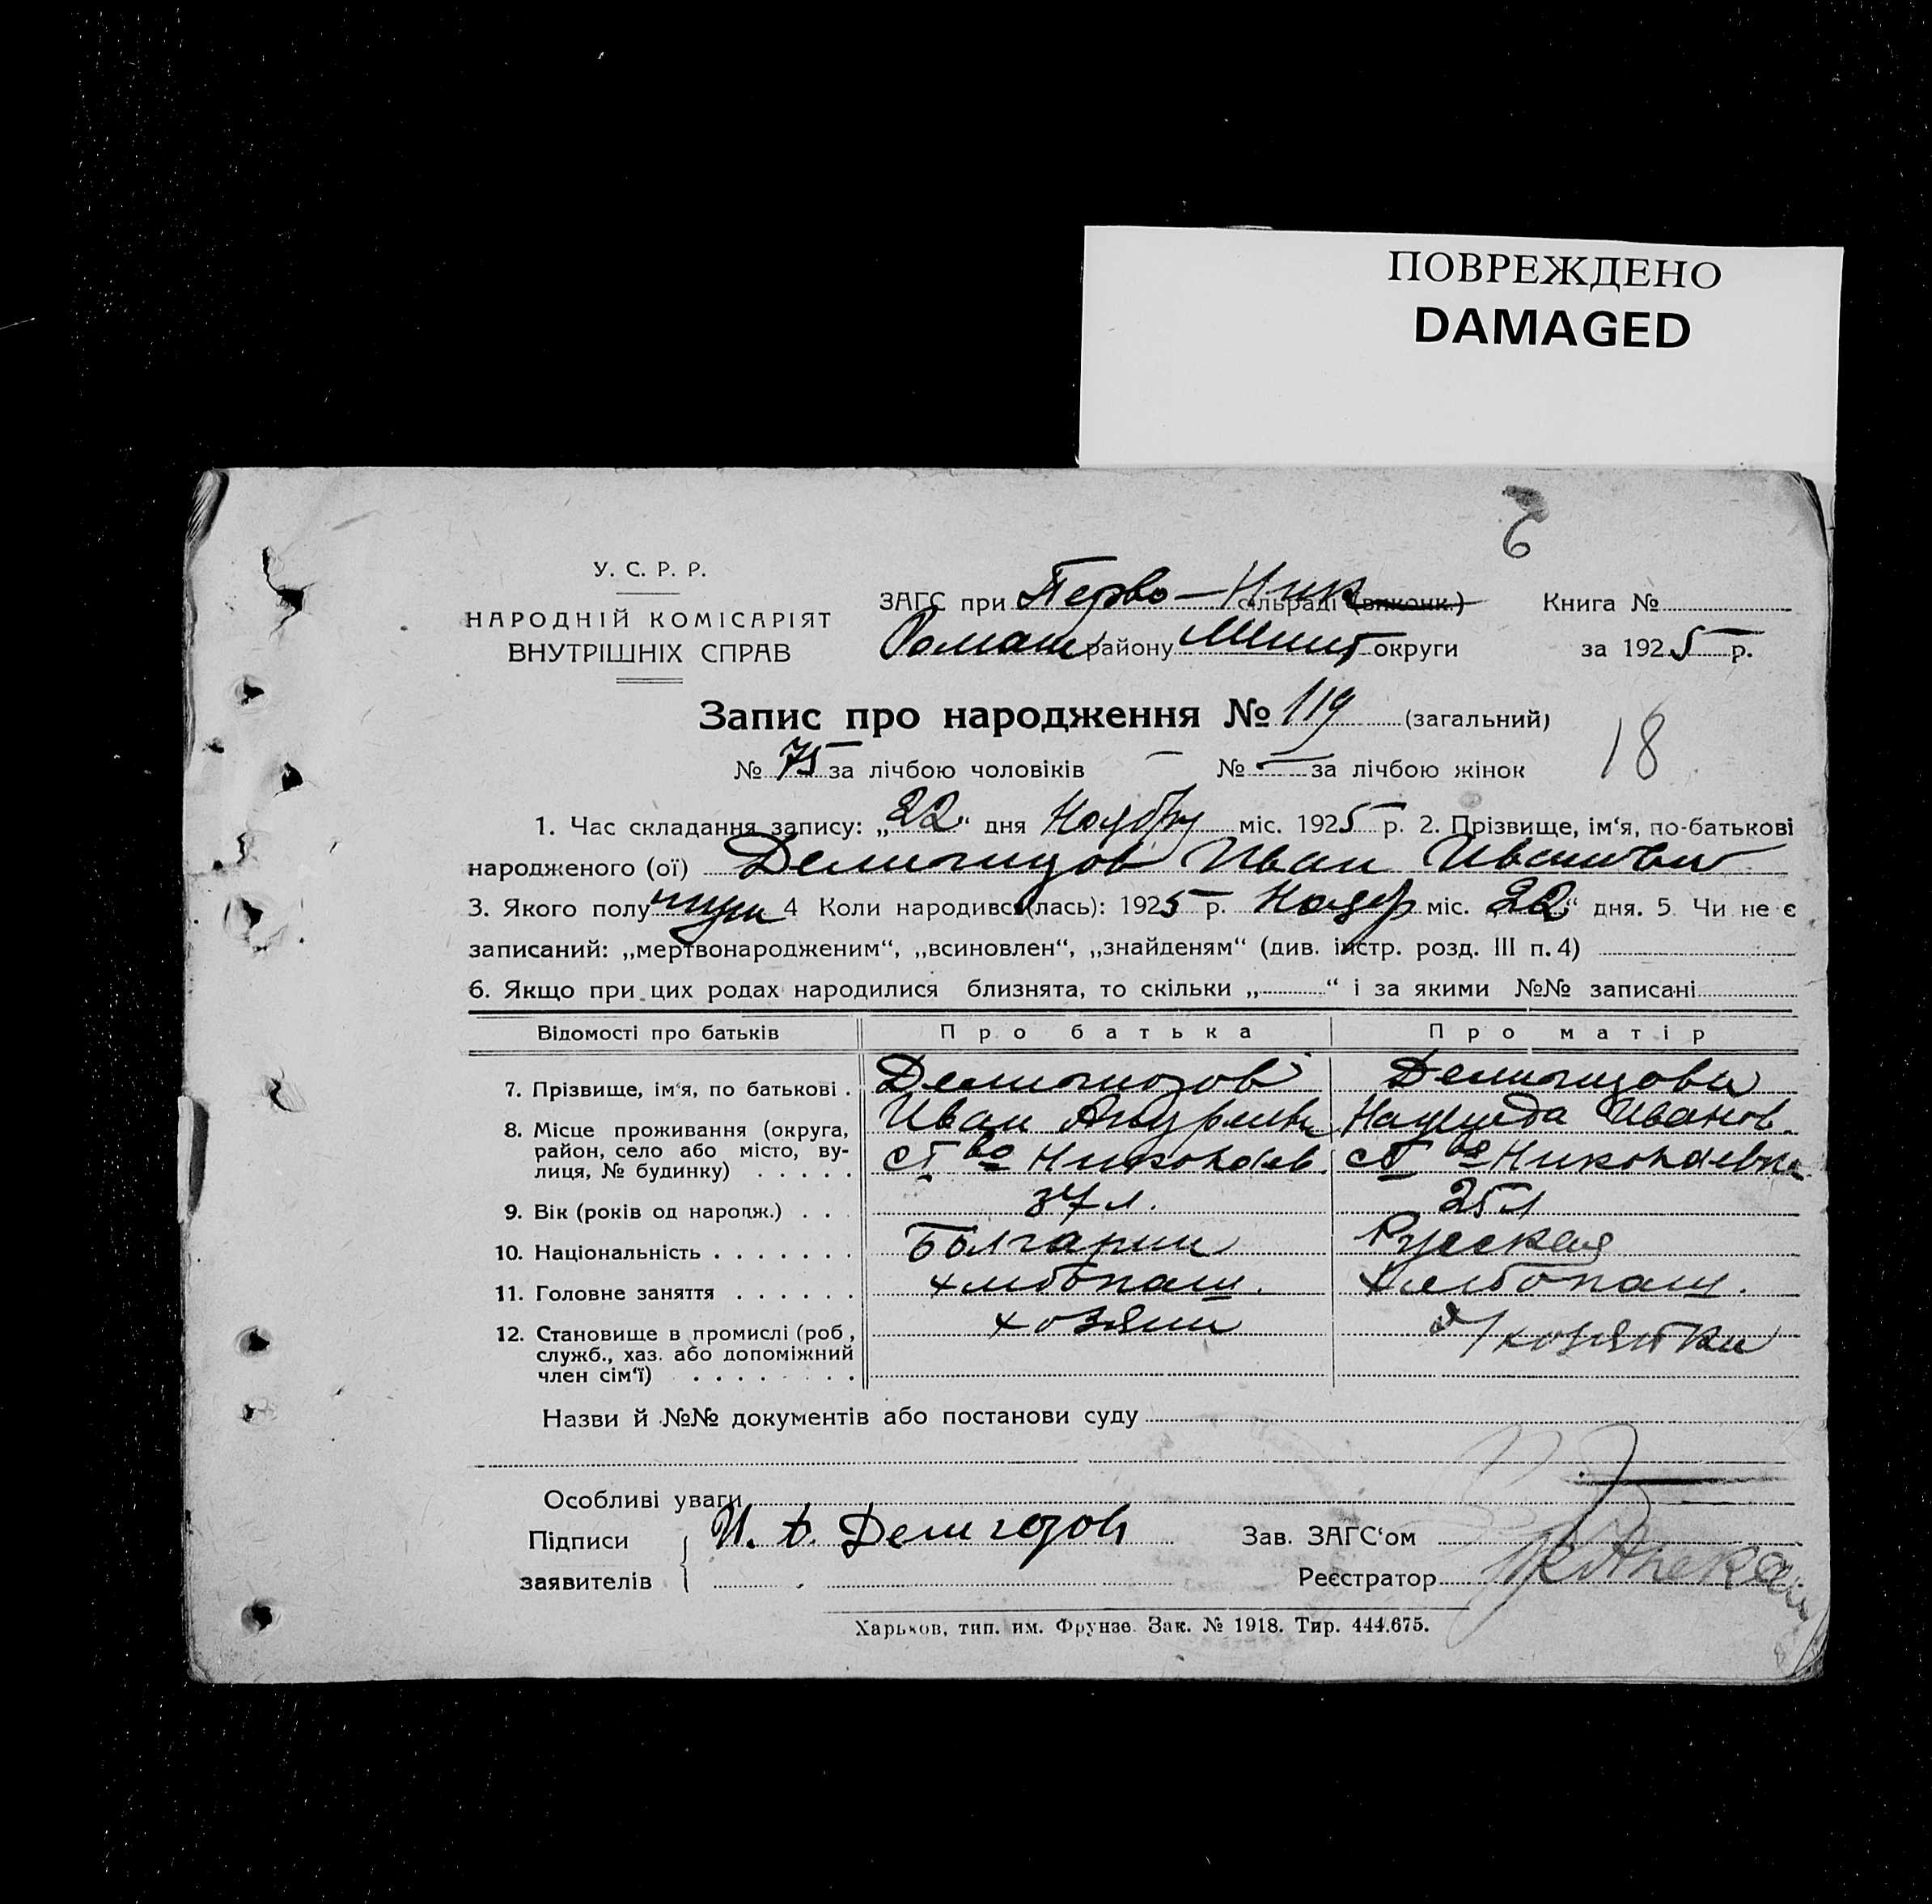 ПОВРЕЖДЕНО
DAMAGED
6
У. С. Р. Р.
НАРОДНІЙ КОМІСАРІЯТ
ВНУТРІШНІХ СПРАВ
ЗАГС при Перво-Ник сільраді (виконк.)
Ромаш району округи
Книга №
за 1925 р.
Запис про народження № 119 (загальний)
№ 75 за лічбою чоловіків № — за лічбою жінок
18
1. Час складання запису: „22“ дня Ноября міс. 1925 р. 2. Прізвище, ім‘я, по-батькові
народженого (ої) Иван Иванович
3. Якого полу муж 4 Коли народивсь(лась): 1925 р. Ноябр міс. „22“ дня. 5. Чи не є
записаний: „мертвонародженим“, „всиновлен“, „знайденям“ (див. інстр. розд. III п. 4)
6. Якщо при цих родах народилися близнята, то скільки „ “ і за якими №№ записані
Відомості про батьків Про батька Про матір
7. Прізвище, ім‘я, по батькові .
Иван Андреевич Надежда Иванов.
8. Місце проживання (округа,
район, село або місто, ву-
лиця, № будинку) . . . . .
во Николаев. во Николаевка
9. Вік (років од народж.) . . . 37 л. 25 л
10. Національність . . . . . . . Болгарин Русская
11. Головне заняття . . . . . . хлібопаш. хлібопаш.
12. Становище в промислі (роб.,
служб., хаз. або допоміжний
член сім‘ї) . . . . . . . .
хозяин д/хозяйки
Назви й №№ документів або постанови суду
Особливі уваги
Підписи
заявителів
И. А.
Зав. ЗАГС‘ом
Реєстратор
Харьков, тип. им. Фрунзе. Зак. № 1918. Тир. 444.675.